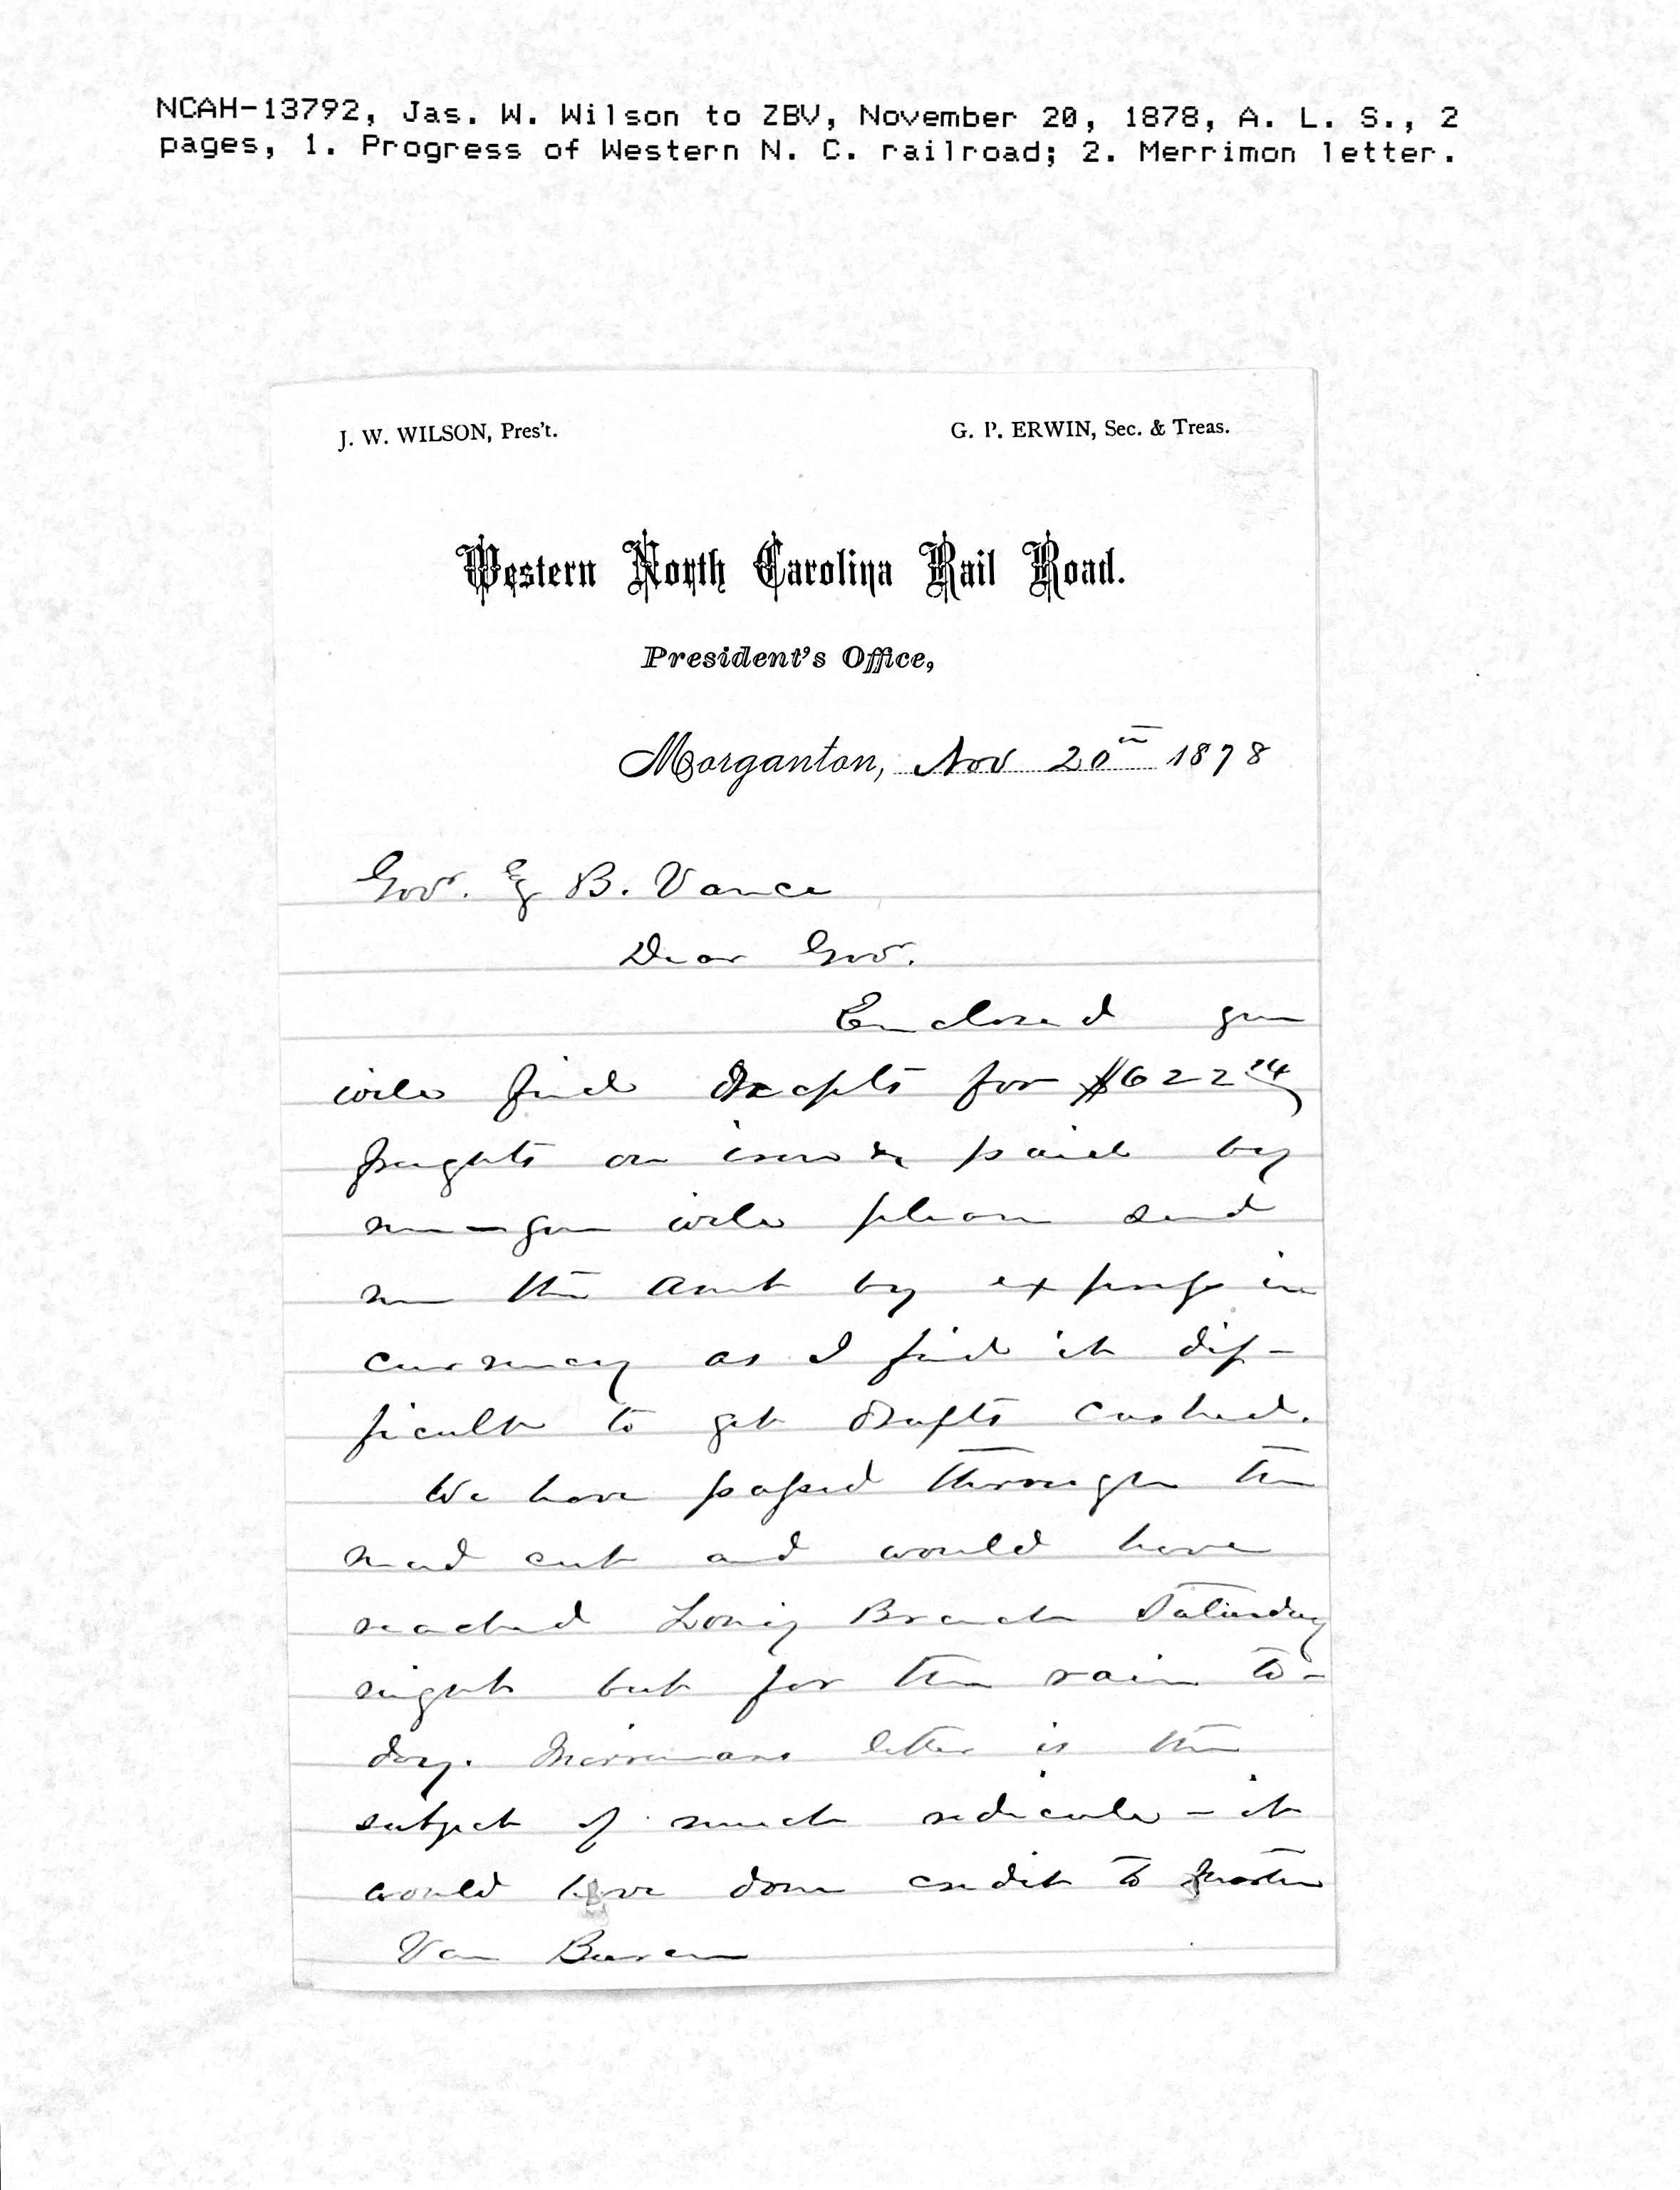 NCAH-13792, Jas. W. Wilson to ZBV, November 20, 1878, A. L. S., 2
pages, 1. Progress of Western N. C. railroad; 2. Merrimon letter.
J. W. WILSON, Pres't.
G. P. ERWIN, Sec. & Treas.
Western North Carolina Rail Road.
President's Office,
Morganton, Nov 20th 1878
Gov. Z B. Vance
Dear Gov.
Enclosed you
will find for $622
freights on iron & paid by
me - you will please send
me the amt by express in
currency as I find it dif-
ficult to get drafts cashed.
We have passed through the
mud cut and would have
reached Long Branch Saturday
night but for the rain to-
day. Merrimons letter is the
subject of much redicule - it
would have done credit to Martin
Van Buren